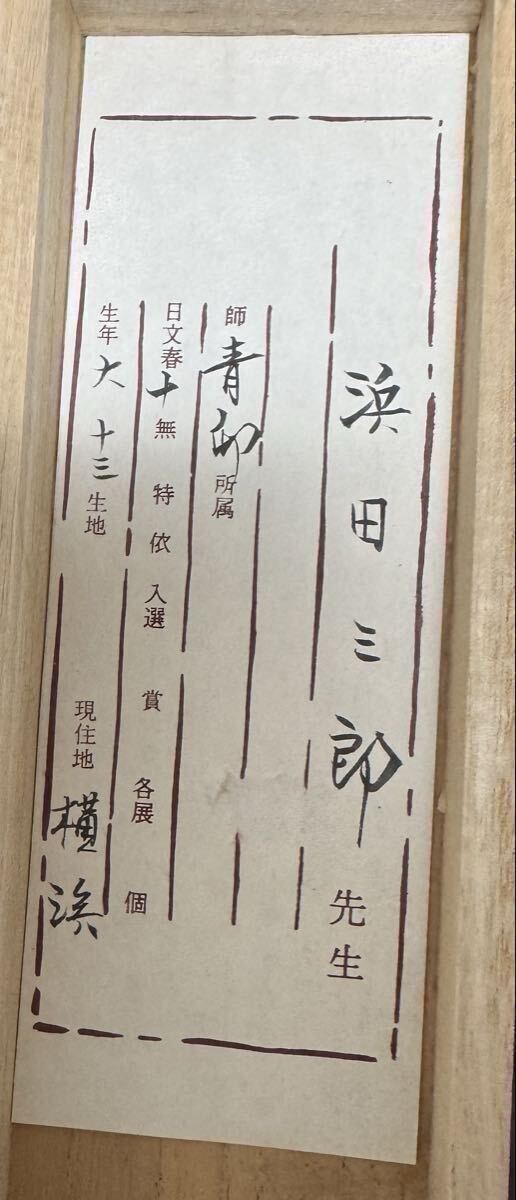 浜田三郎先生
師 青邨 所属
日文春 十 無 特 依 入選 賞 各展 個
生年 大 十三 生地 現住地 横浜